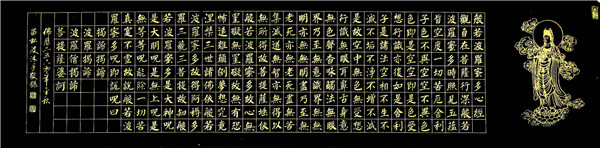 般若波羅蜜多心經
觀自在菩薩行深般若
波羅蜜多時照見五蘊
皆空度一切苦厄舍利
子色不異空空不異色
色即是空空即是色受
想行識亦復如是舍利
子是諸法空相不生不
滅不垢不淨不增不減
是故空中無色無受想
行識無眼耳鼻舌身意
無色聲香味觸法無眼
界乃至無意識界無無
明亦無無明盡乃至無
老死亦無老死盡無苦
集滅道無智亦無得以
無所得故菩提薩埵依
般若波羅蜜多故心無
罣礙無罣礙故無有恐
怖遠離顛倒夢想究竟
涅槃三世諸佛依般若
波羅蜜多故得阿耨多
羅三藐三菩提故知般
若波羅蜜多是大神呪
是大明呪是無上呪是
無等等呪能除一切苦
真實不虛故說般若波
羅蜜多呪即說呪曰
揭諦揭諦
波羅揭諦
波羅僧揭諦
菩提薩婆訶
佛曆二五 六年 秋
沐手敬錄